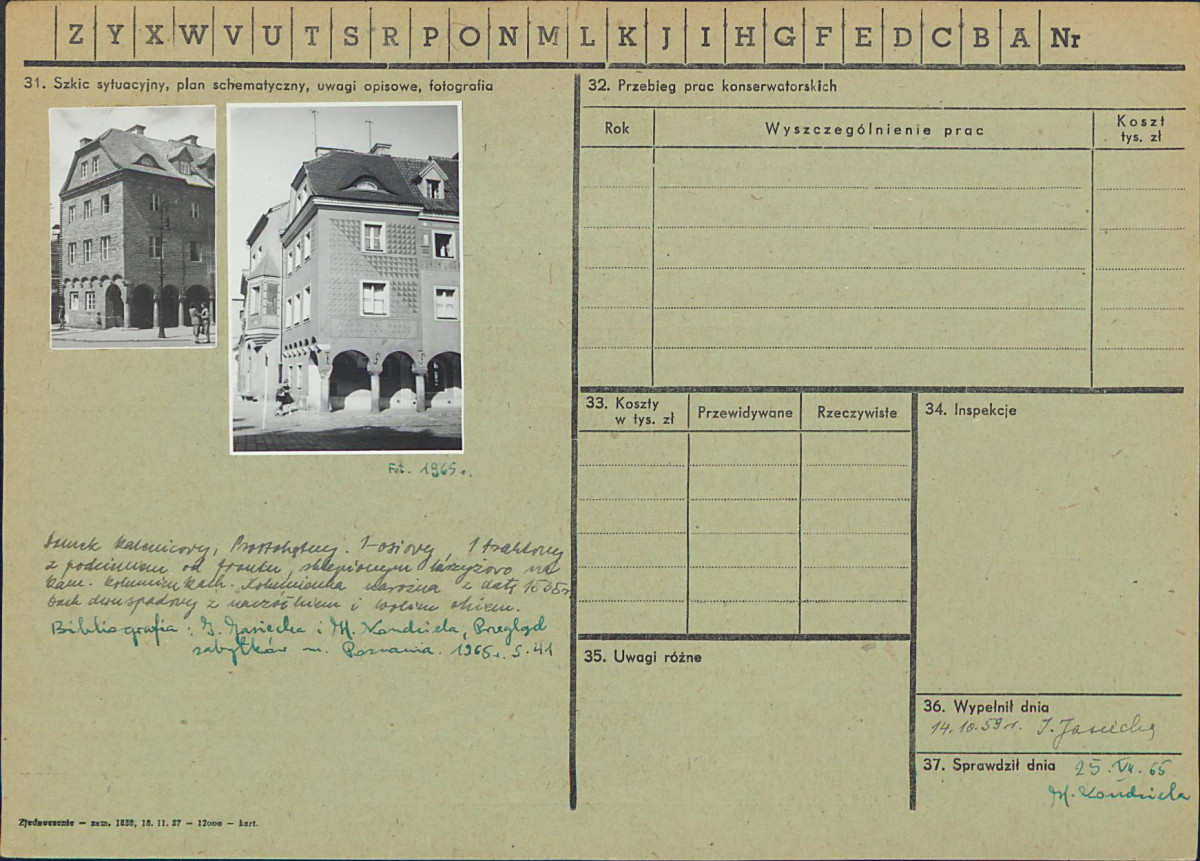 Z Y X W V U T S R P O N M L K J I H G F E D C B A Nr
31. Szkic sytuacyjny, plan schematyczny, uwagi opisowe, fotografia
Fot. 1965 r.
Domek kalenicowy, . 1-osiowy, 1 traktowy
z podcieniem od frontu, sklepionym krzyżowo na
kam. kolumienkach. Kolumienka narożna z datą 1535 r.
Dach dwuspadowy z naczółkiem i wolim okiem.
Bibliografia: I. Jasiecka i H. Kondziela, Przegląd
zabytków m. Poznania. 1965 r. s. 41
32. Przebieg prac konserwatorskich
Rok
Wyszczególnienie prac
Koszt
tys. zł
33. Koszty
w tys. zł
Przewidywane
Rzeczywiste
34. Inspekcje
35. Uwagi różne
36. Wypełnił dnia
14.10.59 r. I. Jasiecka
37. Sprawdził dnia 25. VII. 65
H. Kondziela
Zjednoczenie — zam. 1858, 18. 11. 57 — 12000 — kart.